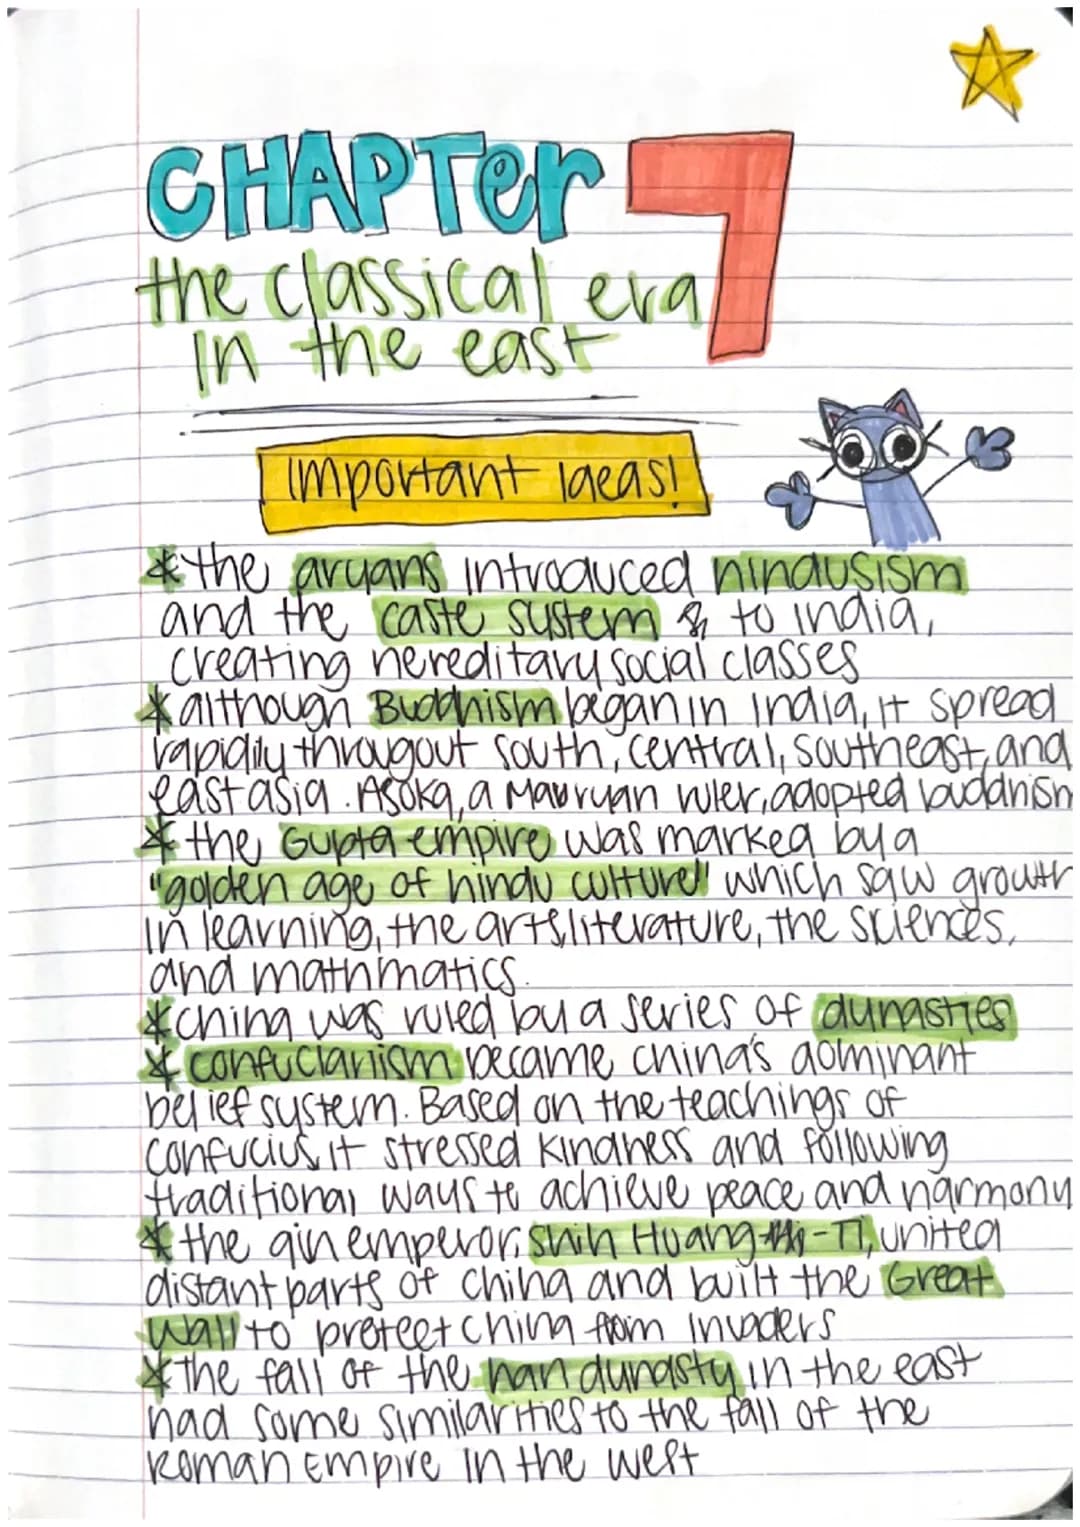 CHAPTer 7
the classical era
In the east
Important Ideas!
*the aryans introduced hindusism
and the caste system to india,
creating hereditary social classes
*although Buddhism began in India, it spread
rapidily througout south, central, southeast, and
east asia. Asoka, a Mauryan ruler, adopted buddhism
*the Gupta empire was marked by a
"golden age of hindu culture" which saw growth
in learning, the arts, literature, the sciences,
and mathmatics.
*china was ruled by a series of dynasties
*confucianiism became china's dominant
belief system. Based on the teachings of
confucius, it stressed kindness and following
traditional ways to achieve peace and harmony
*the qin emperor, Shih Huang-Ti, united
distant parts of china and built the Great
Wall to protect china from invaders
*the fall of the han dynasty in the east
had some similarities to the fall of the
Roman Empire in the west